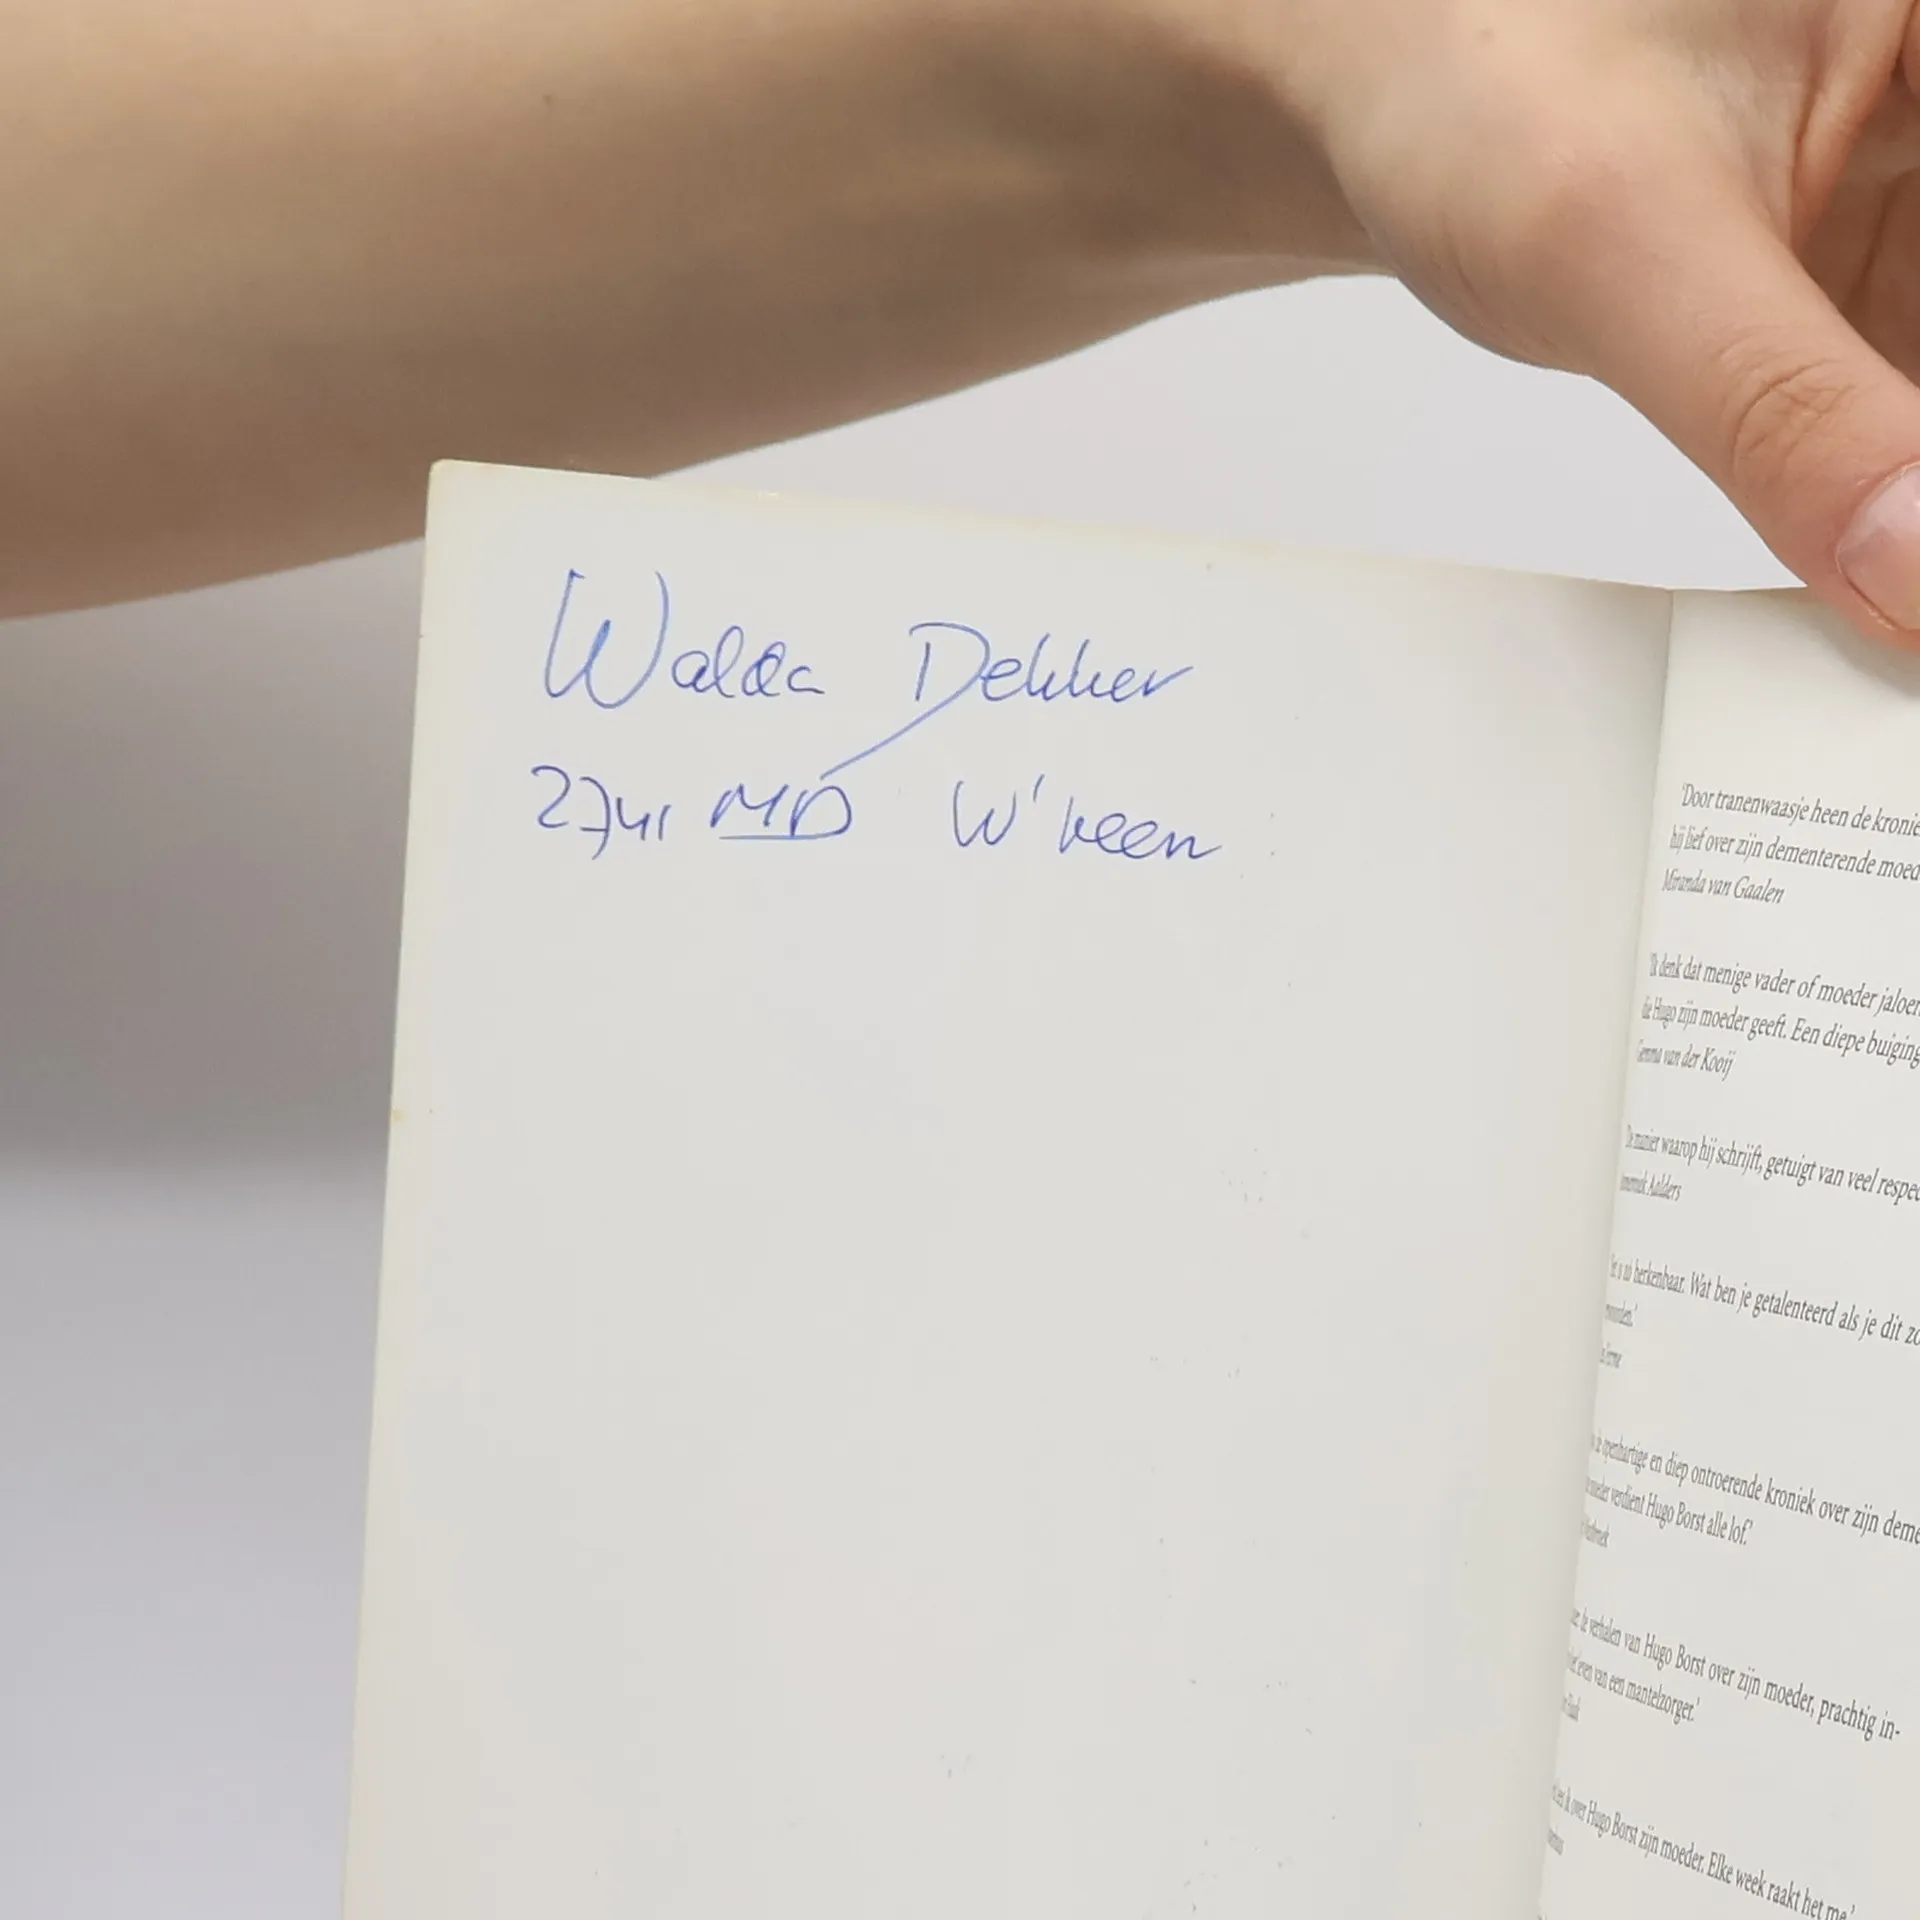 Walda Dekker
2741 MD W'veen
'Door tranenwaasje heen de kronie
hij lief over zijn dementerende moed
Miranda van Gaalen
'Ik denk dat menige vader of moeder jaloer
die Hugo zijn moeder geeft. Een diepe buiging
Gemma van der Kooij
De manier waarop hij schrijft, getuigt van veel respec
Aalders
herkenbaar. Wat ben je getalenteerd als je dit zo
woorden.'
openhartige en diep ontroerende kroniek over zijn deme
moeder verdient Hugo Borst alle lof.'
de verhalen van Hugo Borst over zijn moeder, prachtig in-
leven van een mantelzorger.'
ik over Hugo Borst zijn moeder. Elke week raakt het me.'